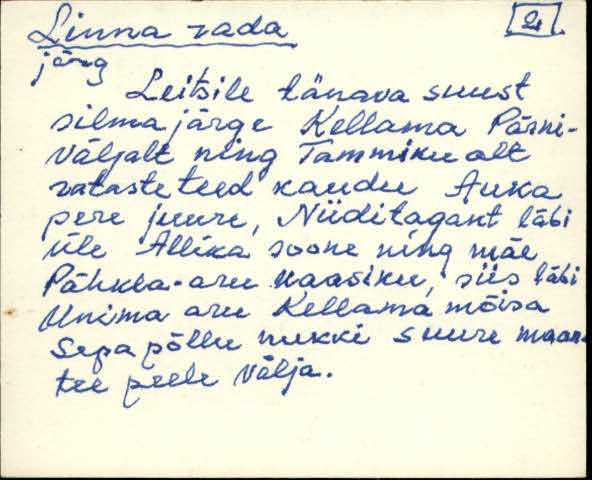 Linna rada
2
järg
Leitsile tänava suust
silma järge Kellama Pärni-
väljalt ning Tammiku alt
rataste teed kaudu Auka
pere juure, Niiditagant läbi
üle Allika soone ning mäe
Pähkla-aru kaasiku, siis läbi
Unima aru Kellama mõisa
Sepa põllu nukki suure maan-
tee peele välja.